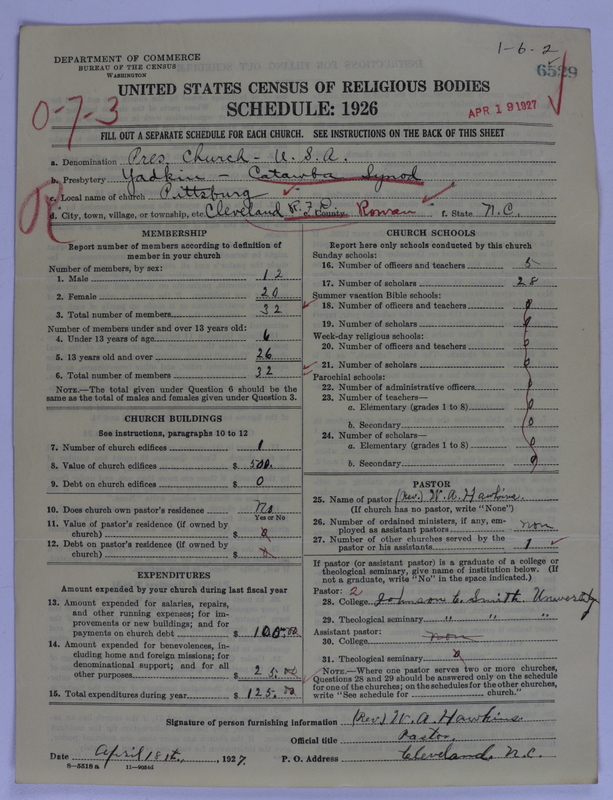 1-6-2
DEPARTMENT OF COMMERCE
BUREAU OF THE CENSUS
WASHINGTON
6529
UNITED STATES CENSUS OF RELIGIOUS BODIES
SCHEDULE: 1926
0-7-3
APR 19 1927
FILL OUT A SEPARATE SCHEDULE FOR EACH CHURCH. SEE INSTRUCTIONS ON THE BACK OF THIS SHEET
a. Denomination Pres. Church - U. S. A.
b. Presbytery Yadkin - Catawba Synod
c. Local name of church Pittsburg
R
d. City, town, village, or township, etc. Cleveland R.F.D. County Rowan f. State N.C.
MEMBERSHIP
Report number of members according to definition of
member in your church
Number of members, by sex:
1. Male 12
2. Female 20
3. Total number of members 32
Number of members under and over 13 years old:
4. Under 13 years of age 6
5. 13 years old and over 26
6. Total number of members 32
NOTE.—The total given under Question 6 should be the
same as the total of males and females given under Question 3.
CHURCH BUILDINGS
See instructions, paragraphs 10 to 12
7. Number of church edifices 1
8. Value of church edifices $ 500.
9. Debt on church edifices $ 0
10. Does church own pastor's residence No
Yes or No
11. Value of pastor's residence (if owned by
church) $ 0
12. Debt on pastor's residence (if owned by
church) $ 0
EXPENDITURES
Amount expended by your church during last fiscal year
13. Amount expended for salaries, repairs,
and other running expenses; for im-
provements or new buildings; and for
payments on church debt $ 100.00
14. Amount expended for benevolences, in-
cluding home and foreign missions; for
denominational support; and for all
other purposes $ 25.00
15. Total expenditures during year $ 125.00
CHURCH SCHOOLS
Report here only schools conducted by this church
Sunday schools:
16. Number of officers and teachers 5
17. Number of scholars 28
Summer vacation Bible schools:
18. Number of officers and teachers 0
19. Number of scholars 0
Week-day religious schools:
20. Number of officers and teachers 0
21. Number of scholars 0
Parochial schools:
22. Number of administrative officers 0
23. Number of teachers—
a. Elementary (grades 1 to 8) 0
b. Secondary 0
24. Number of scholars—
a. Elementary (grades 1 to 8) 0
b. Secondary 0
PASTOR
25. Name of pastor (Rev.) W. A. Hawkins.
(If church has no pastor, write "None")
26. Number of ordained ministers, if any, em-
ployed as assistant pastors non
27. Number of other churches served by the
pastor or his assistants 1
If pastor (or assistant pastor) is a graduate of a college or
theological seminary, give name of institution below. (If
not a graduate, write "No" in the space indicated.)
Pastor: 2
28. College Johnson C. Smith University
29. Theological seminary " " "
Assistant pastor:
30. College non
31. Theological seminary 0
NOTE.—Where one pastor serves two or more churches,
Questions 28 and 29 should be answered only on the schedule
for one of the churches; on the schedules for the other churches,
write "See schedule for church."
Signature of person furnishing information (Rev) W. A. Hawkins
Official title Pastor.
Date April 18th, 1927. P. O. Address Cleveland, N.C.
8-5518a 11-9034d